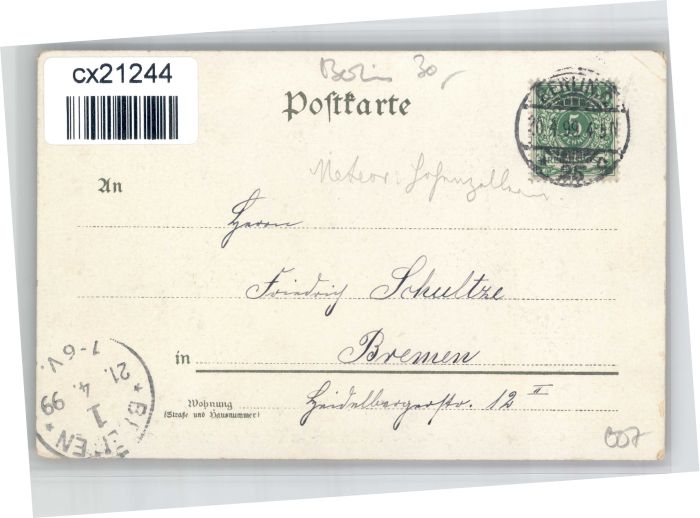 cx21244
Berlin 30,-
Postkarte
BERLIN
20.4.99.4-5N
* 25 c
5
Meteor: Hohenzollern
An
Herrn
Friedrich Schultze
in Bremen
Wohnung
(Straße und Hausnummer)
Heidelbergerstr. 12 II
BREMEN
1
21. 4. 99
1-6 V.
007